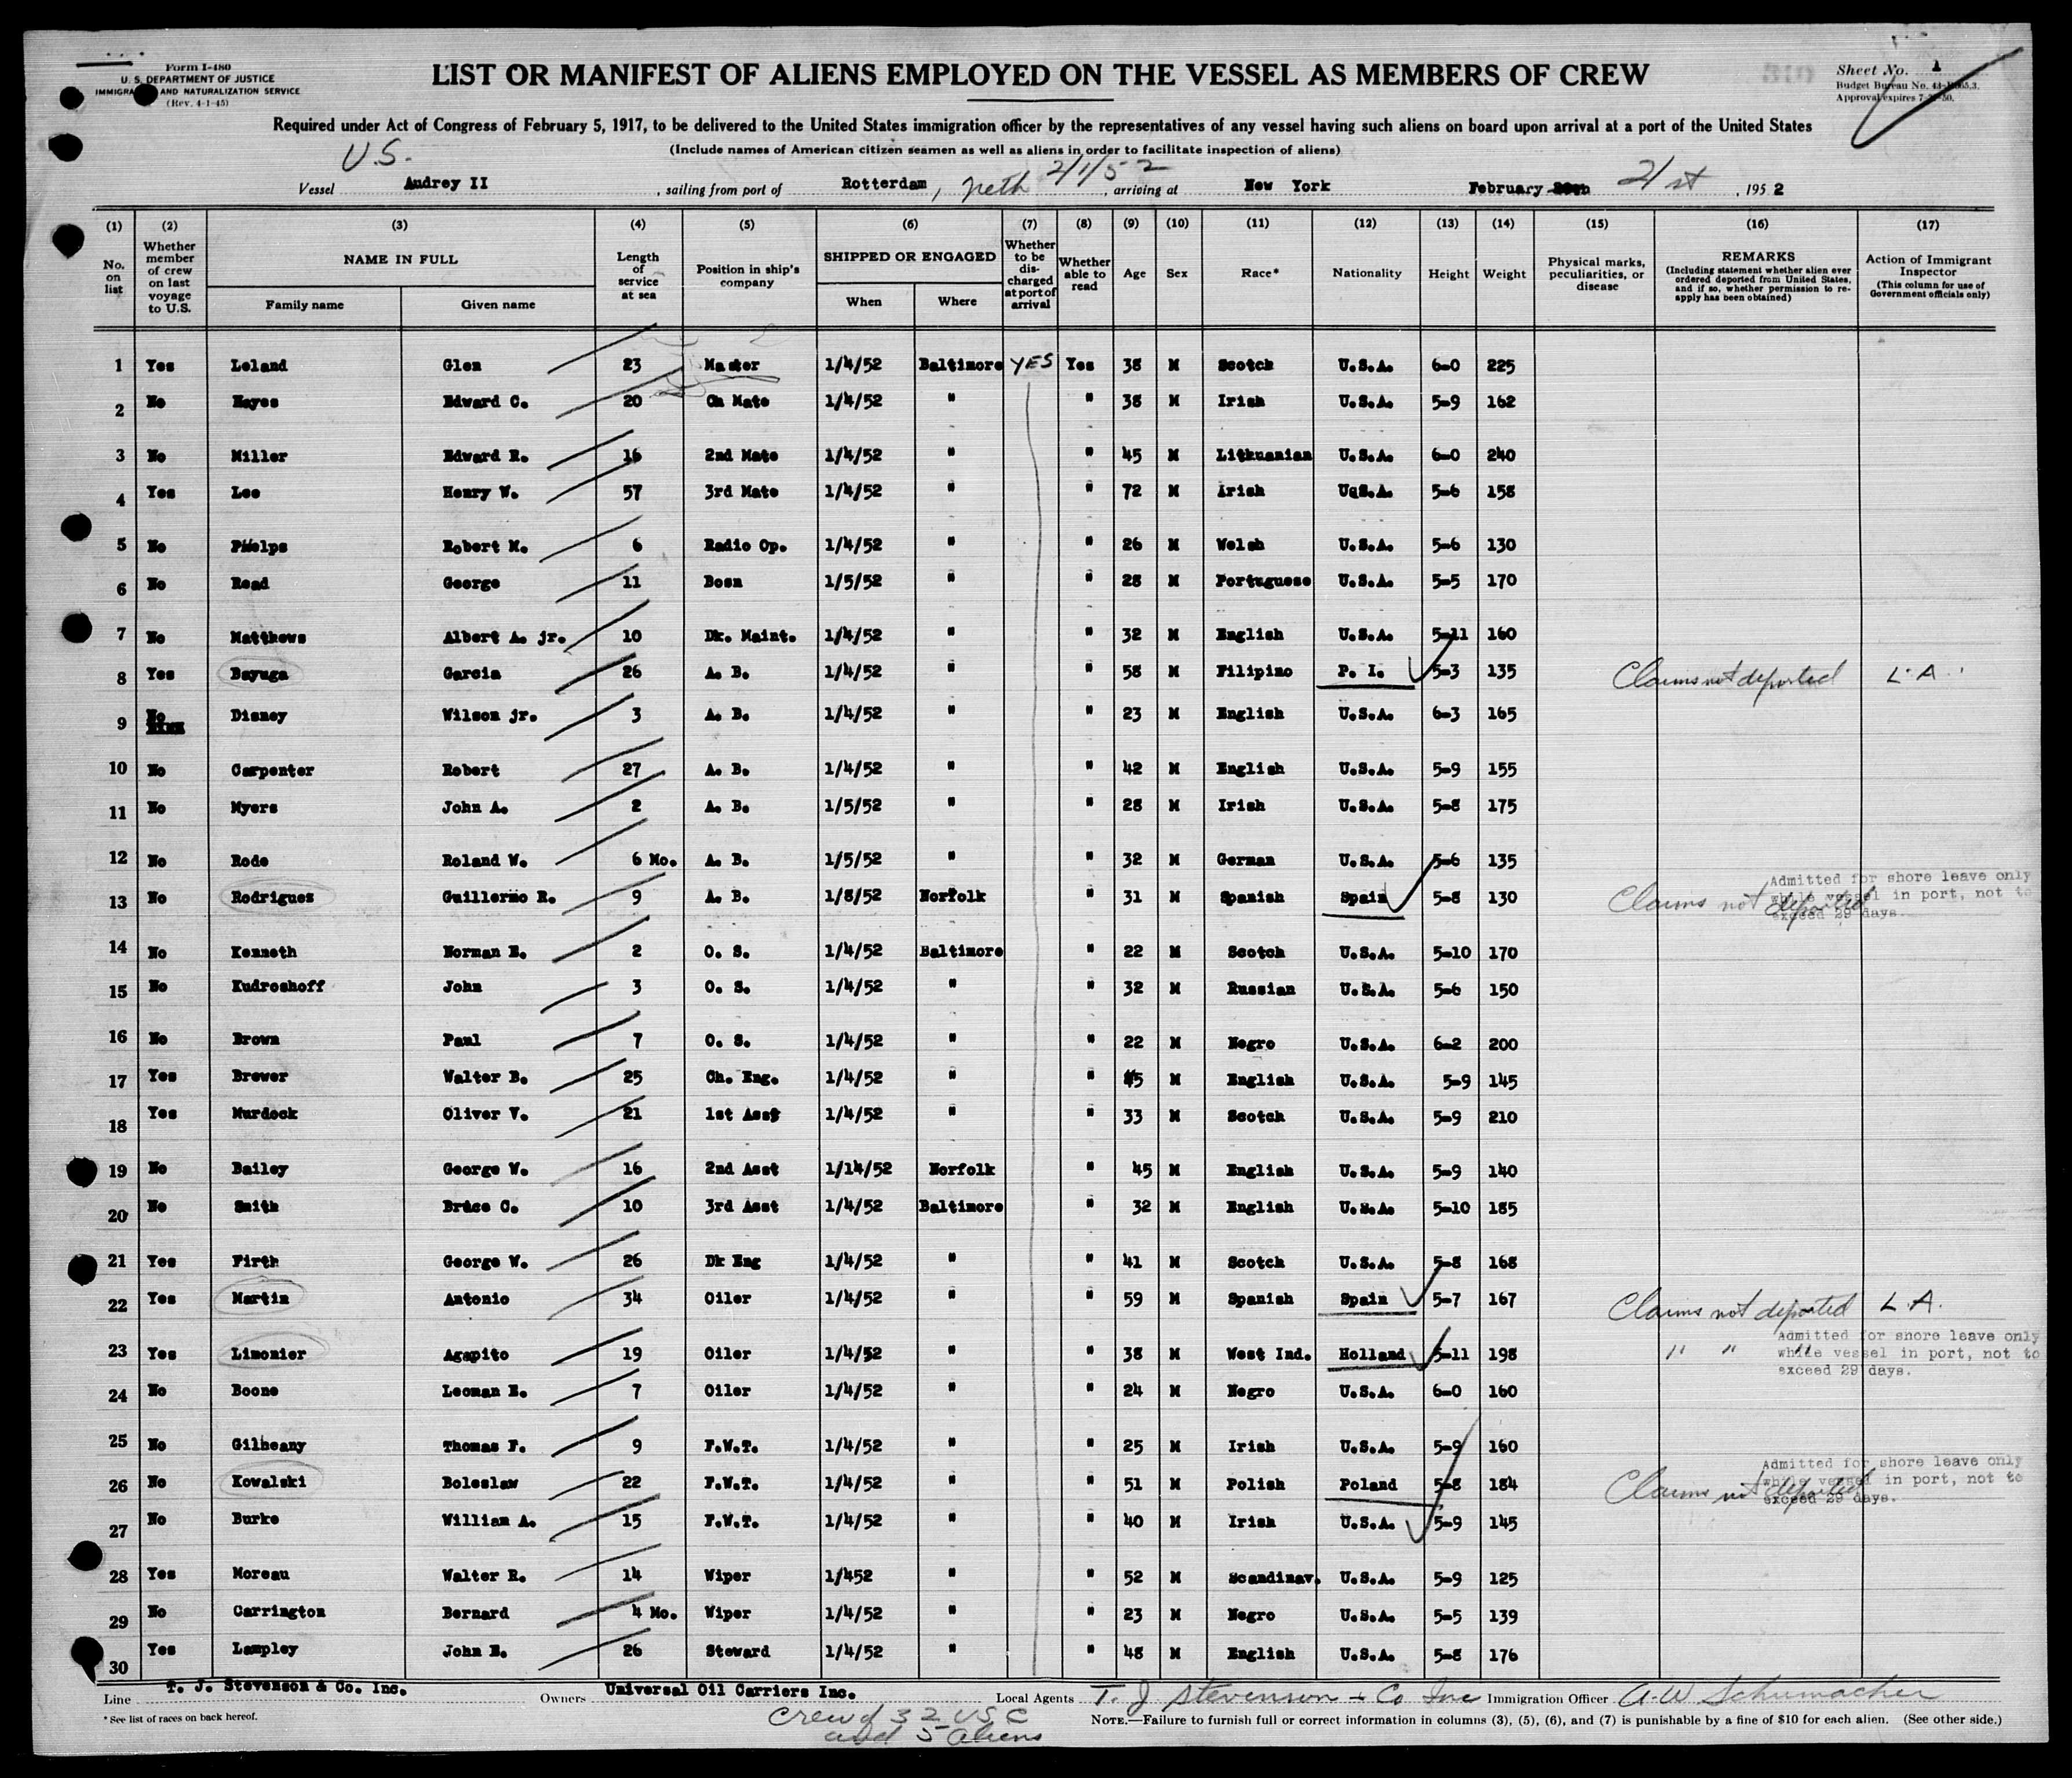 Form I-480
U. S. DEPARTMENT OF JUSTICE
IMMIGRA AND NATURALIZATION SERVICE
(Rev. 4-1-45)
LIST OR MANIFEST OF ALIENS EMPLOYED ON THE VESSEL AS MEMBERS OF CREW
Sheet No. 1
Budget Bureau No.
Approval expires
Required under Act of Congress of February 5, 1917, to be delivered to the United States immigration officer by the representatives of any vessel having such aliens on board upon arrival at a port of the United States
(Include names of American citizen seamen as well as aliens in order to facilitate inspection of aliens)
U.S.
Vessel Audrey II, sailing from port of Rotterdam, Neth 2/1/52, arriving at New York February 21st, 1952
(1) (2) (3) (4) (5) (6) (7) (8) (9) (10) (11) (12) (13) (14) (15) (16) (17)
No. on list
Whether member of crew on last voyage to U.S.
NAME IN FULL
Family name
Given name
Length of service at sea
Position in ship's company
SHIPPED OR ENGAGED
When
Where
Whether to be discharged at port of arrival
Whether able to read
Age
Sex
Race*
Nationality
Height
Weight
Physical marks, peculiarities, or disease
REMARKS
(Including statement whether alien ever ordered deported from United States, and if so, whether permission to reapply has been obtained)
Action of Immigrant Inspector
(This column for use of Government officials only)
1 Yes Leland Glen 23 Master 1/4/52 Baltimore YES Yes 38 M Scotch U.S.A. 6-0 225
2 No Hayes Edward C. 20 Ch Mate 1/4/52 " " 38 M Irish U.S.A. 5-9 162
3 No Miller Edward R. 16 2nd Mate 1/4/52 " " 45 M Lithuanian U.S.A. 6-0 240
4 Yes Lee Henry W. 57 3rd Mate 1/4/52 " " 72 M Irish U.S.A. 5-6 158
5 No Phelps Robert M. 6 Radio Op. 1/4/52 " " 26 M Welsh U.S.A. 5-6 130
6 No Read George 11 Bosn 1/5/52 " " 28 M Portuguese U.S.A. 5-5 170
7 No Matthews Albert A. jr. 10 Dk. Maint. 1/4/52 " " 32 M English U.S.A. 5-11 160
8 Yes Bayuga Garcia 26 A. B. 1/4/52 " " 58 M Filipino P. I. 5-3 135 Claims not deported L.A.
9 No Disney Wilson jr. 3 A. B. 1/4/52 " " 23 M English U.S.A. 6-3 165
10 No Carpenter Robert 27 A. B. 1/4/52 " 42 M English U.S.A. 5-9 155
11 No Myers John A. 2 A. B. 1/5/52 " " 28 M Irish U.S.A. 5-8 175
12 No Rode Roland W. 6 Mo. A. B. 1/5/52 " " 32 M German U.S.A. 5-6 135
13 No Rodrigues Guillermo R. 9 A. B. 1/8/52 Norfolk " 31 M Spanish Spain 5-8 130 Claims not deported Admitted for shore leave only while vessel in port, not to exceed 29 days.
14 No Kenneth Norman E. 2 O. S. 1/4/52 Baltimore " 22 M Scotch U.S.A. 5-10 170
15 No Kudroshoff John 3 O. S. 1/4/52 " " 32 M Russian U.S.A. 5-6 150
16 No Brown Paul 7 O. S. 1/4/52 " " 22 M Negro U.S.A. 6-2 200
17 Yes Brewer Walter B. 25 Ch. Eng. 1/4/52 " " 45 M English U.S.A. 5-9 145
18 Yes Murdock Oliver V. 21 1st Asst 1/4/52 " " 33 M Scotch U.S.A. 5-9 210
19 No Bailey George W. 16 2nd Asst 1/14/52 Norfolk " 45 M English U.S.A. 5-9 140
20 No Smith Bruce C. 10 3rd Asst 1/4/52 Baltimore " 32 M English U.S.A. 5-10 185
21 Yes Firth George W. 26 Dk Eng 1/4/52 " " 41 M Scotch U.S.A. 5-8 168
22 Yes Martin Antonio 34 Oiler 1/4/52 " " 59 M Spanish Spain 5-7 167 Claims not deported L.A.
23 Yes Limonier Agapito 19 Oiler 1/4/52 " " 38 M West Ind. Holland 5-11 198 " " " Admitted for shore leave only while vessel in port, not to exceed 29 days.
24 No Boone Leoman E. 7 Oiler 1/4/52 " " 24 M Negro U.S.A. 6-0 160
25 No Gilheany Thomas F. 9 F.W.T. 1/4/52 " " 25 M Irish U.S.A. 5-9 160
26 No Kowalski Boleslaw 22 F.W.T. 1/4/52 " " 51 M Polish Poland 5-8 184 Claims not deported Admitted for shore leave only while vessel in port, not to exceed 29 days.
27 No Burke William A. 15 F.W.T. 1/4/52 " " 40 M Irish U.S.A. 5-9 145
28 Yes Moreau Walter R. 14 Wiper 1/452 " " 52 M Scandinav. U.S.A. 5-9 125
29 No Carrington Bernard 4 Mo. Wiper 1/4/52 " " 23 M Negro U.S.A. 5-5 139
30 Yes Lampley John E. 26 Steward 1/4/52 " " 48 M English U.S.A. 5-8 176
Line T. J. Stevenson & Co. Inc. Owners Universal Oil Carriers Inc. Local Agents T. J Stevenson + Co Inc Immigration Officer A. W Schumacher
* See list of races on back hereof.
Crew of 32 USC
and 5 aliens
NOTE.—Failure to furnish full or correct information in columns (3), (5), (6), and (7) is punishable by a fine of $10 for each alien. (See other side.)